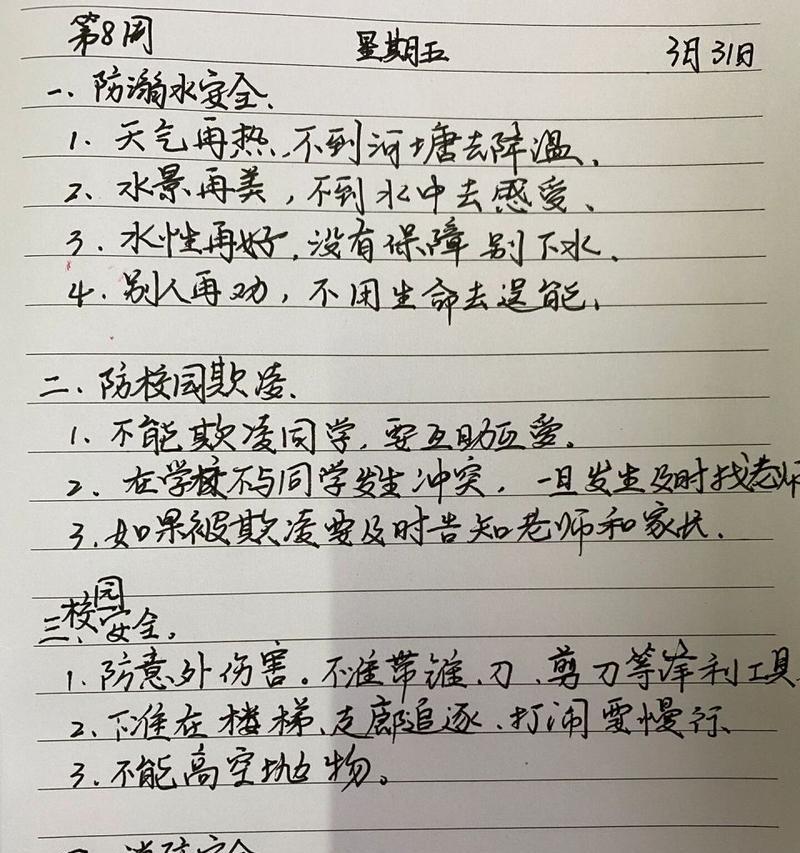 第8周 星期五 3月31日
一、防溺水安全、
1、天气再热、不到河塘去降温、
2、水景再美，不到水中去感受、
3、水性再好，没有保障别下水、
4、别人再劝，不用生命去逞能、
二、防校园欺凌、
1、不能欺凌同学，要互助互爱。
2、在学校不与同学发生冲突，一旦发生及时找老师
3、如果被欺凌要及时告知老师和家长、
三、校园安全。
1、防意外伤害。不准带锥、刀、剪刀等锋利工具
2、不准在楼梯、走廊追逐、打闹要慢行、
3、不能高空抛物。